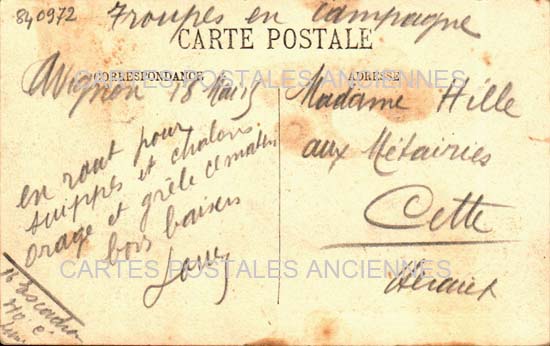 840972
Troupes en campagne
CARTE POSTALE
CORRESPONDANCE
ADRESSE
CARTES POSTALES ANCIENNES
Avignon 18 Mai 15
en rout pour
suippes et chalons.
orage et grêle ce matin
bons baisers
Madame Hille
aux Métairies
Cette
Hérault
CARTES POSTALES ANCIENNES
16 Escadron